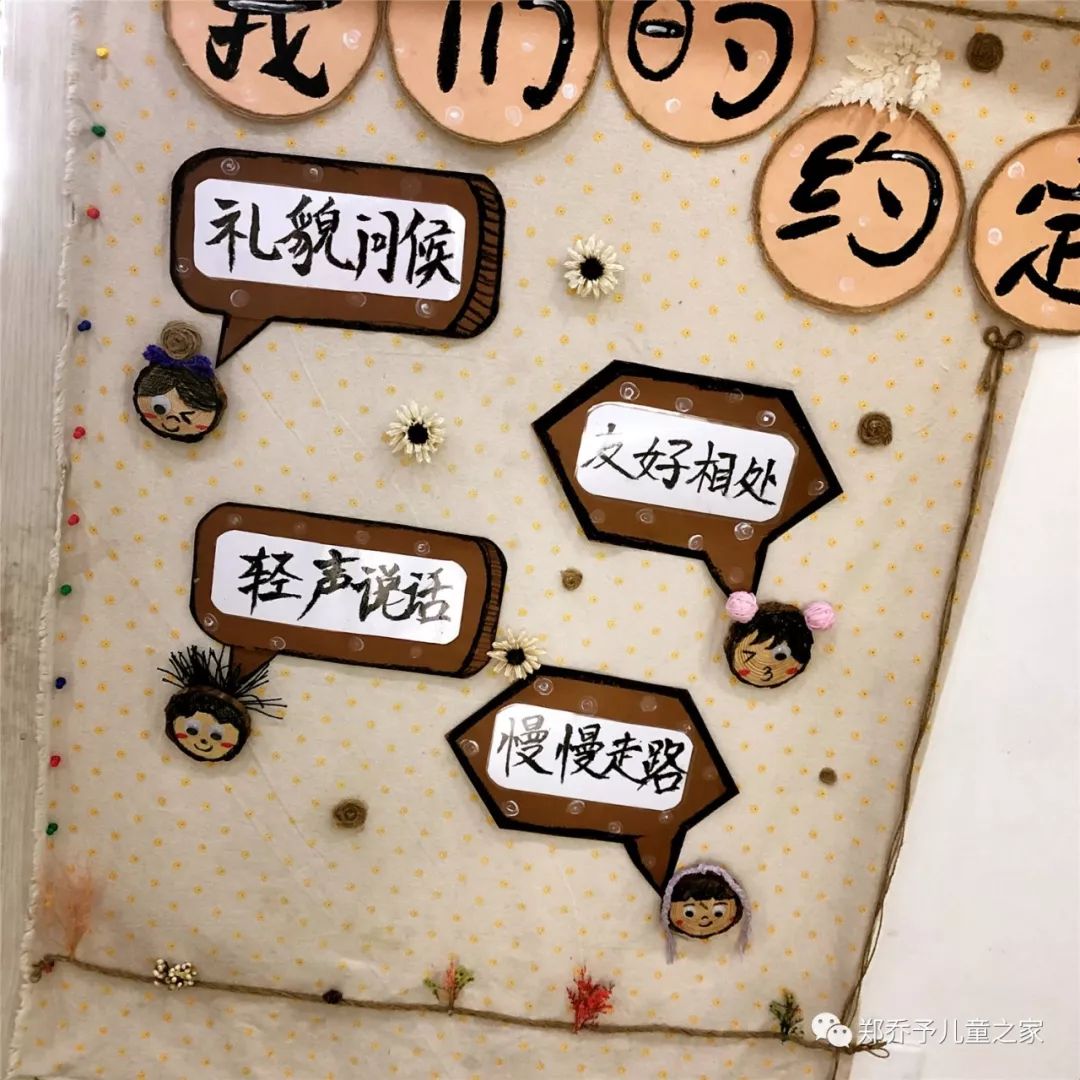 我们的
约定
礼貌问候
友好相处
轻声说话
慢慢走路
郑乔予儿童之家